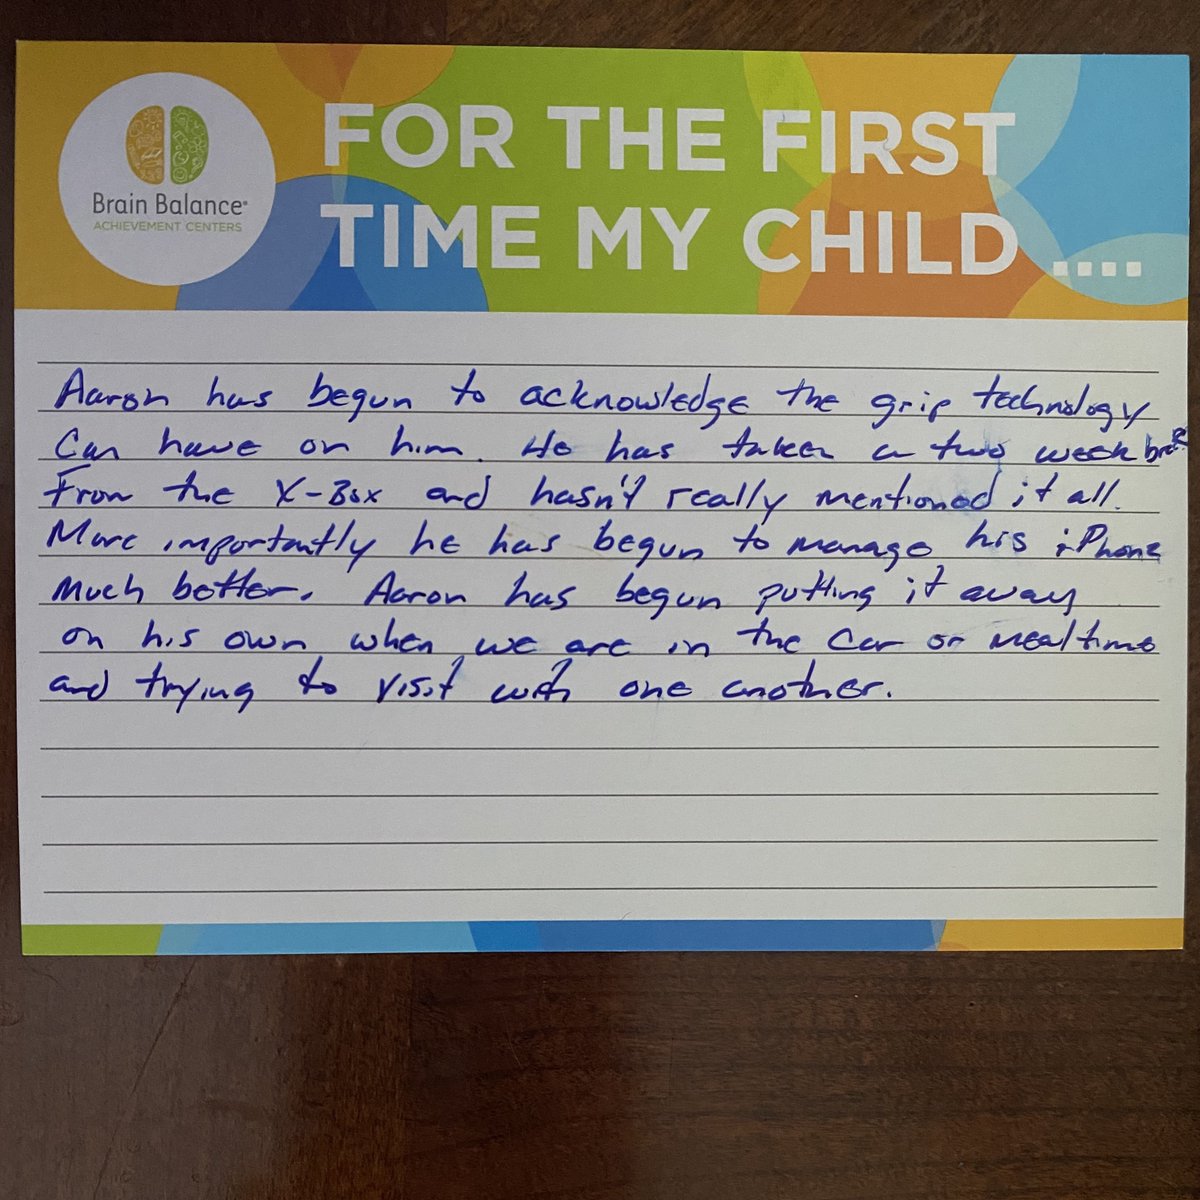 Brain Balance®
ACHIEVEMENT CENTERS
FOR THE FIRST
TIME MY CHILD ....
Aaron has begun to acknowledge the grip technology
Can have on him. He has taken a two week break
From the X-Box and hasn't really mentioned it all.
More importantly he has begun to manage his iPhone
Much better. Aaron has begun putting it away
on his own when we are in the Car or mealtime
and trying to visit with one another.